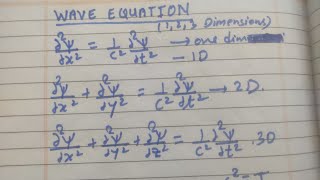 WAVE EQUATION
(1, 2, 3 Dimensions)
∂²ψ/∂x² = 1/c² ∂²ψ/∂t² → one dim
– 1D
∂²ψ/∂x² + ∂²ψ/∂y² = 1/c² ∂²ψ/∂t² → 2D.
∂²ψ/∂x² + ∂²ψ/∂y² + ∂²ψ/∂z² = 1/c² ∂²ψ/∂t² . 3D